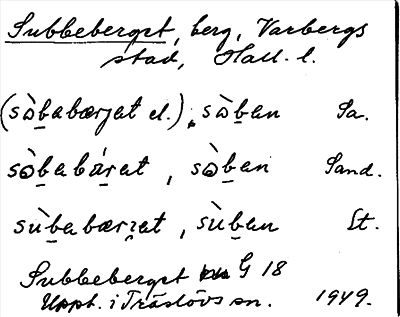 Subbeberget, berg, Varbergs
stad, Hall. l.
(sòbabærjat el.), sòban Sa.
sòbabárat, sòban Sand.
sùbabærjat, sùban St.
Subbeberget G 18
Uppt. i Träslövs sn. 1949.